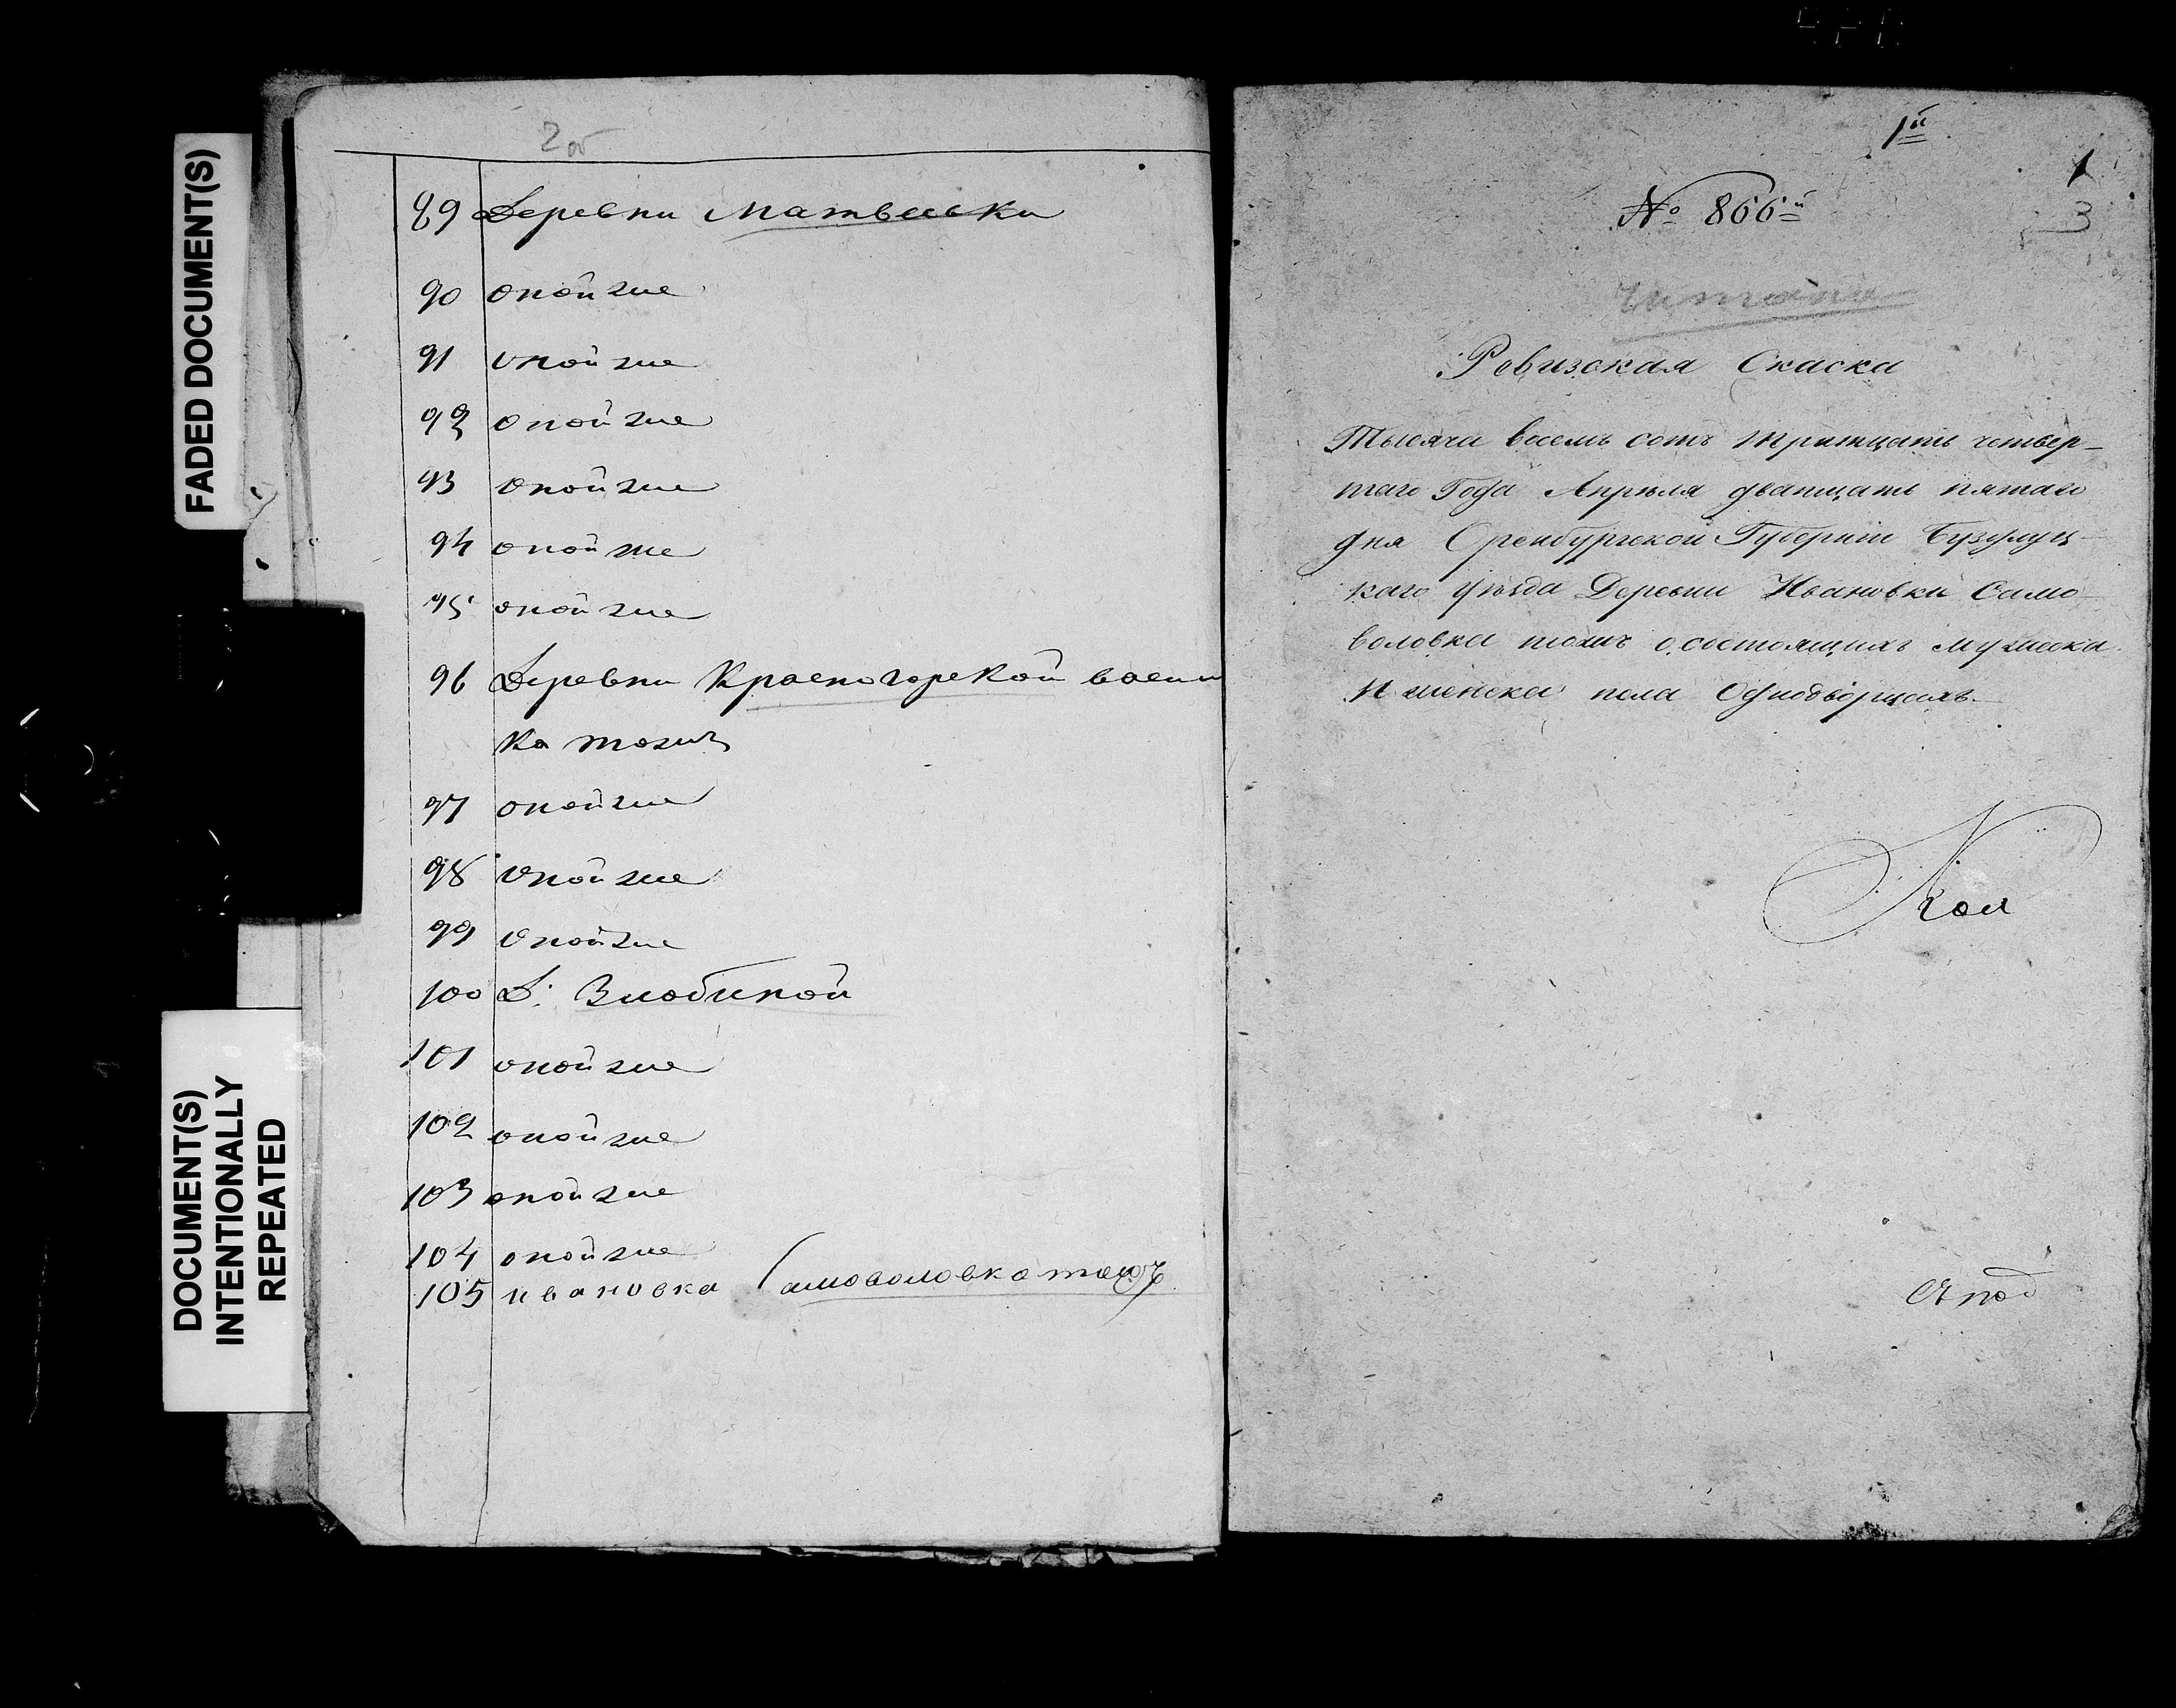 FADED DOCUMENT(S)
DOCUMENT(S)
INTENTIONALLY
REPEATED
2 об
89 Деревни Матвеевки
90 оной же
91 оной же
92 оной же
93 оной же
94 оной же
95 оной же
96 Деревни Красногорской
ка тожъ
97 оной же
98 оной же
99 оной же
100 Д. Злобиной
101 оной же
102 оной же
103 оной же
104 оной же
105 ивановка Самоволовка тожъ
1й
1
№ 866й
3
читано
Ревизская Скаска
Тысяча восемь сотъ тритцать четвер-
таго Года Апреля дватцать пятаго
дня Оренбургской Губернии Бузулуц-
каго уезда Деревни Ивановки Само-
воловка тожъ о состоящихъ мужеска
и женска пола Однодворцахъ.